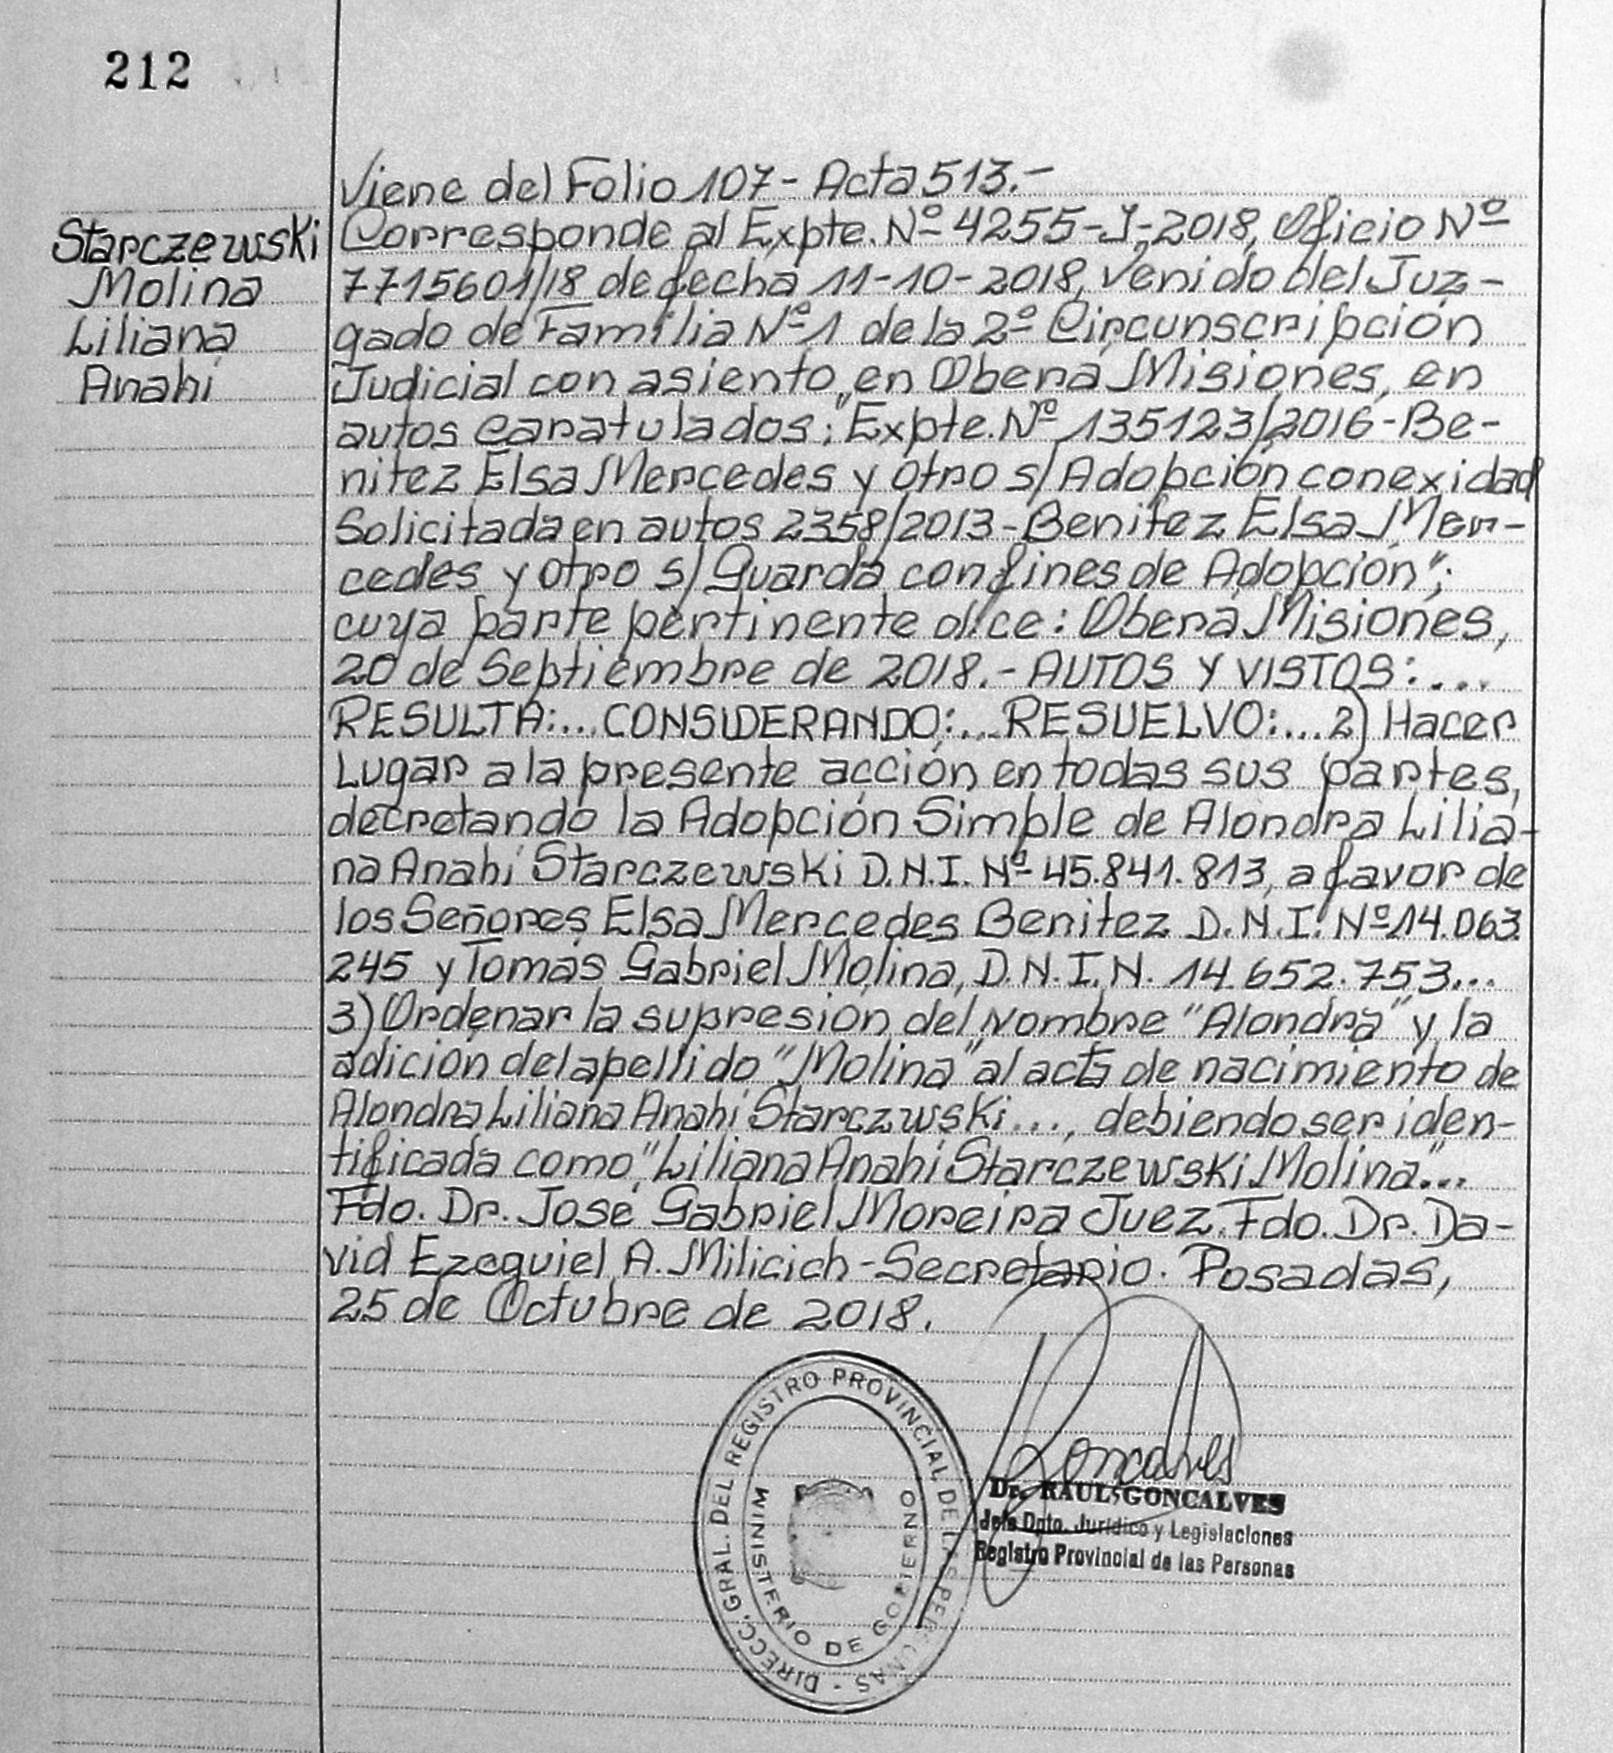 212
Starczewski
Molina
Liliana
Anahí
Viene del Folio 107- Acta 513.-
Corresponde al Expte. Nº 4255-J-2018, Oficio Nº
7715601/18 de fecha 11-10-2018, venido del Juz-
gado de Familia Nº 1 de la 2º Circunscripción
Judicial con asiento en Oberá Misiones, en
autos caratulados: "Expte. Nº 135123/2016-Be-
nitez Elsa Mercedes y otro s/ Adopción conexidad
Solicitada en autos 2358/2013-Benitez Elsa Mer-
cedes y otro s/ Guarda con fines de Adopción";
cuya parte pertinente dice: Oberá Misiones,
20 de Septiembre de 2018.- AUTOS Y VISTOS:...
RESULTA:...CONSIDERANDO:...RESUELVO:...2) Hacer
Lugar a la presente acción en todas sus partes,
decretando la Adopción Simple de Alondra Lilia-
na Anahí Starczewski D.N.I. Nº 45.841.813, a favor de
los Señores Elsa Mercedes Benitez D.N.I. Nº 14.063.
245 y Tomas Gabriel Molina, D.N.I.N. 14.652.753...
3) Ordenar la supresión del Nombre "Alondra" y la
adición del apellido "Molina" al acta de nacimiento de
Alondra Liliana Anahí Starczwski..., debiendo ser iden-
tificada como "Liliana Anahí Starczewski Molina"...
Fdo. Dr. José Gabriel Moreira Juez. Fdo. Dr. Da-
vid Ezequiel A. Milicich-Secretario. Posadas,
25 de Octubre de 2018.
DIRECC. GRAL. DEL REGISTRO PROVINCIAL DE LAS PERSONAS -
MINISTERIO DE GOBIERNO
Goncalves
Dr. RAUL GONCALVES
Jefe Dpto. Jurídico y Legislaciones
Registro Provincial de las Personas